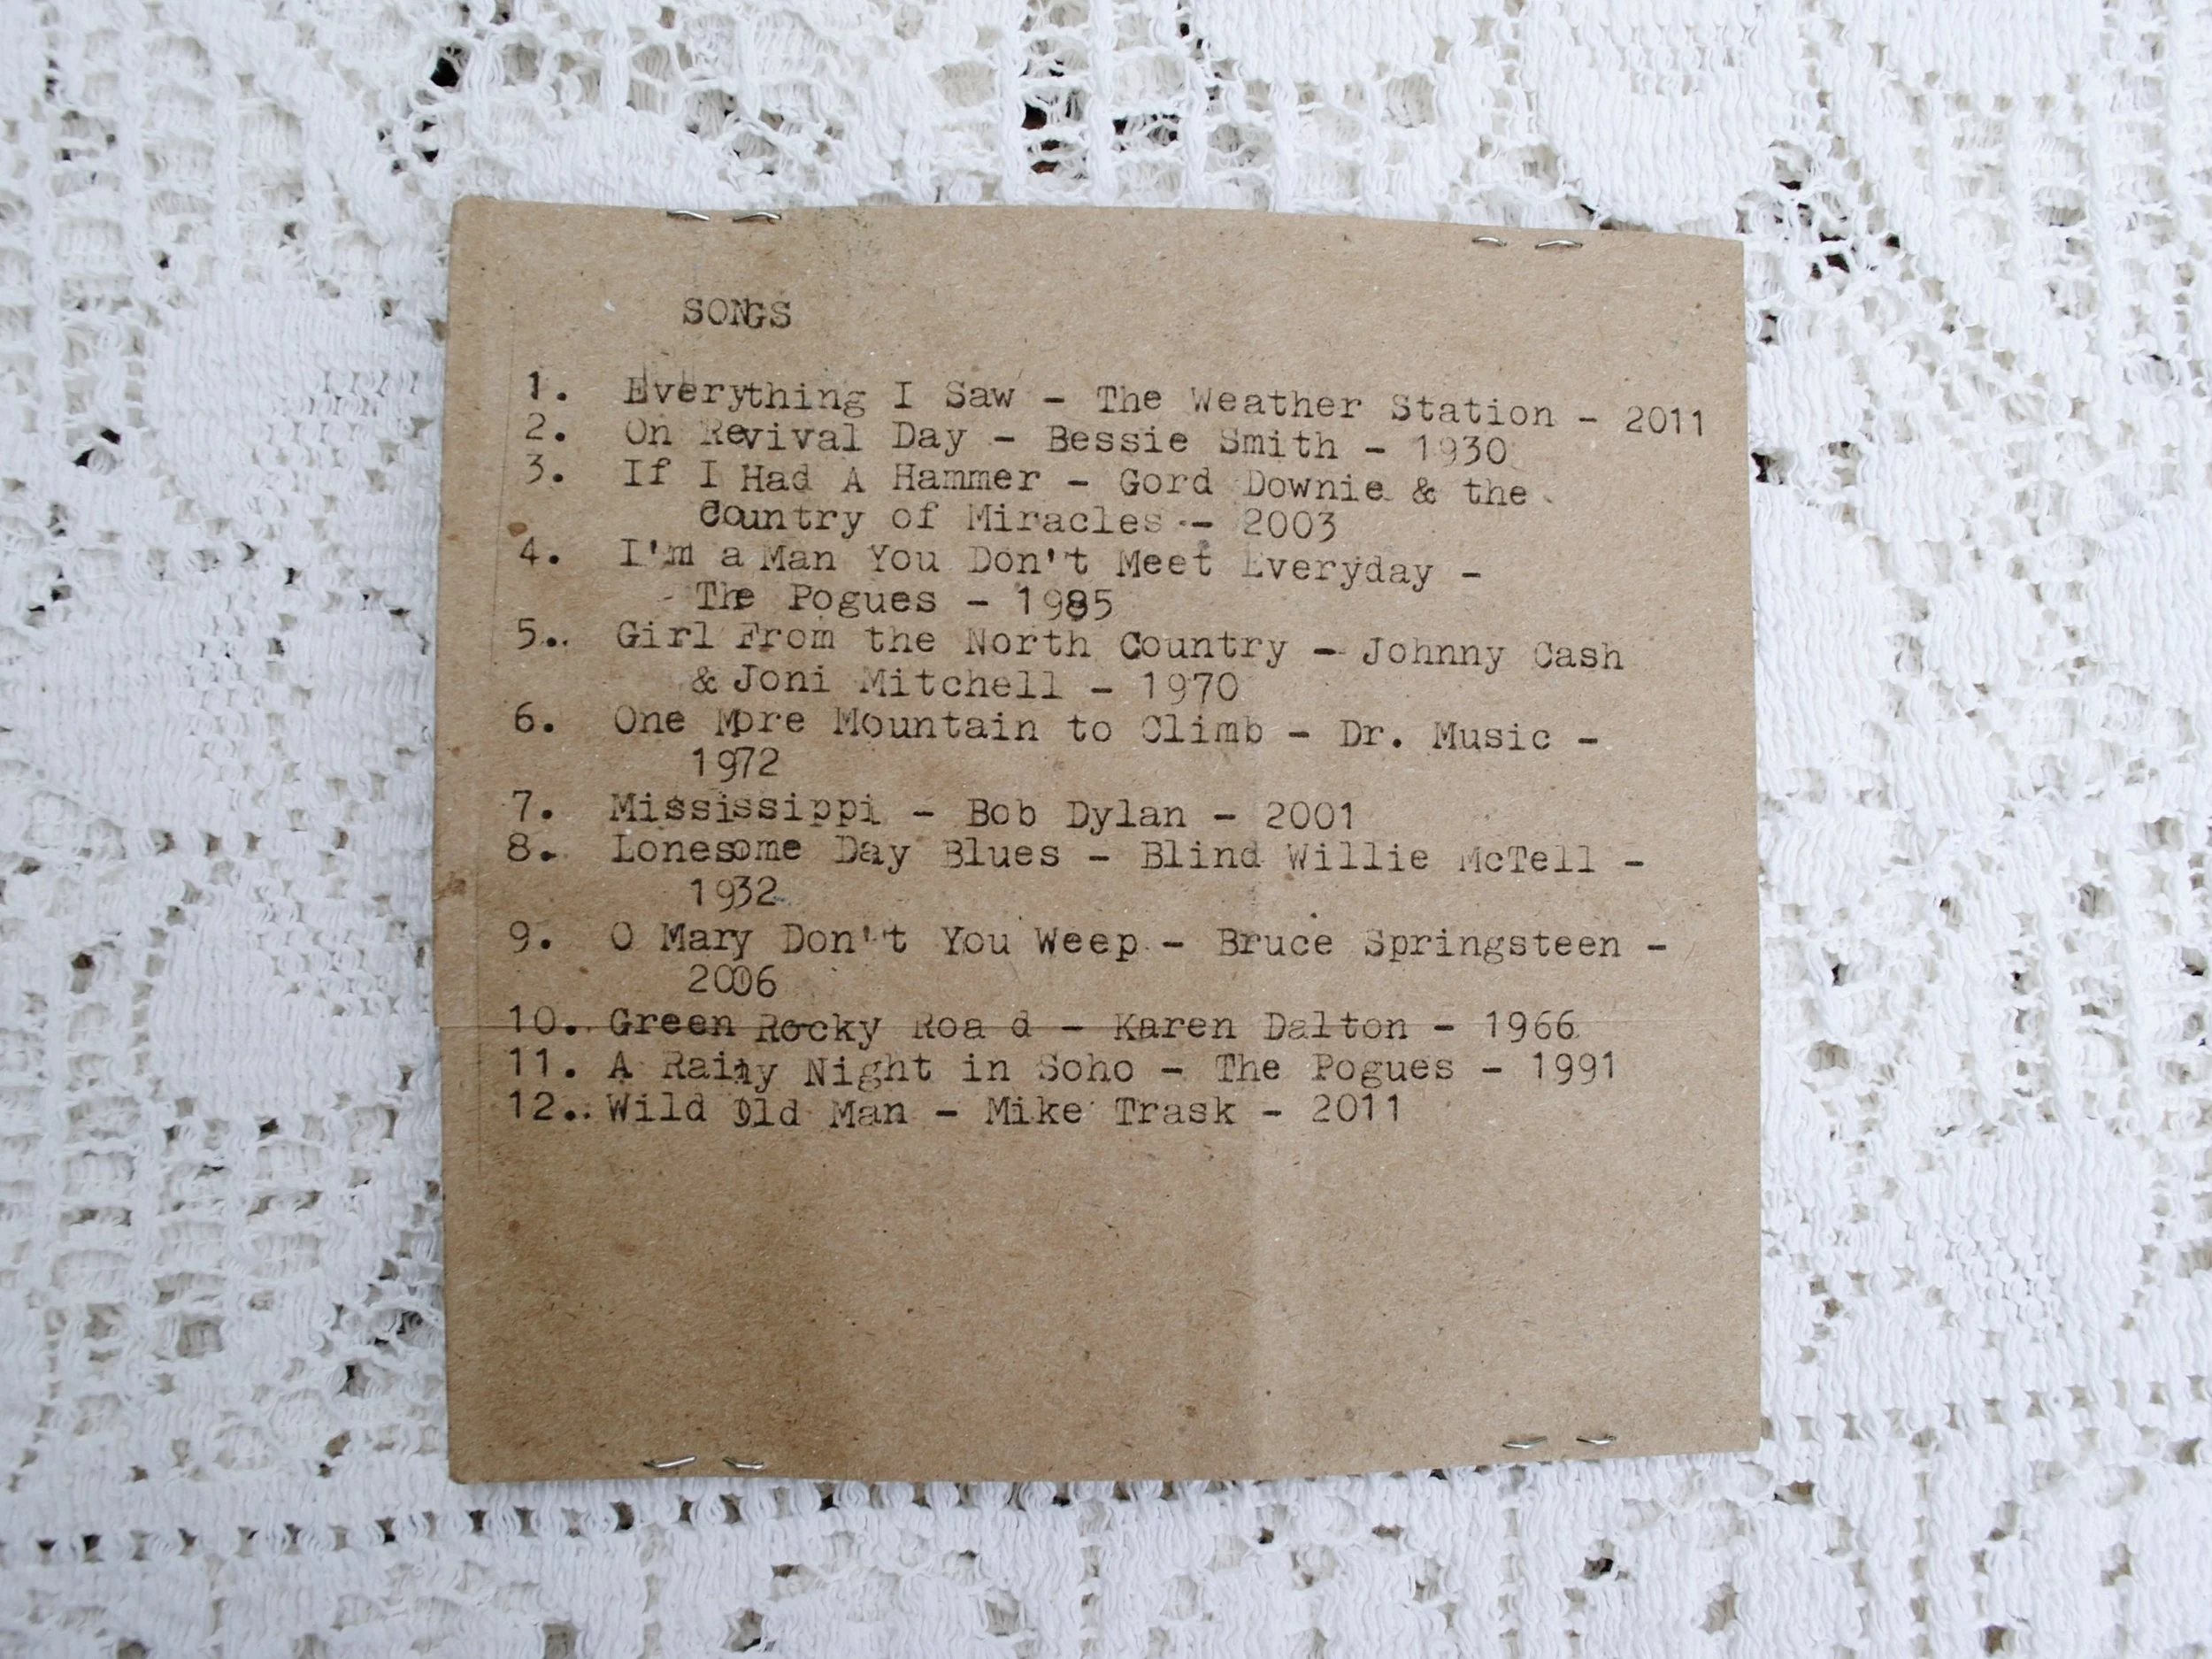 SONGS
1. Everything I Saw - The Weather Station - 2011
2. On Revival Day - Bessie Smith - 1930
3. If I Had A Hammer - Gord Downie & the
Country of Miracles - 2003
4. I'm a Man You Don't Meet Everyday -
The Pogues - 1985
5.. Girl From the North Country - Johnny Cash
& Joni Mitchell - 1970
6. One More Mountain to Climb - Dr. Music -
1972
7. Mississippi - Bob Dylan - 2001
8. Lonesome Day Blues - Blind Willie McTell -
1932
9. O Mary Don't You Weep - Bruce Springsteen -
2006
10. Green Rocky Roa d - Karen Dalton - 1966
11. A Rainy Night in Soho - The Pogues - 1991
12.. Wild Old Man - Mike Trask - 2011